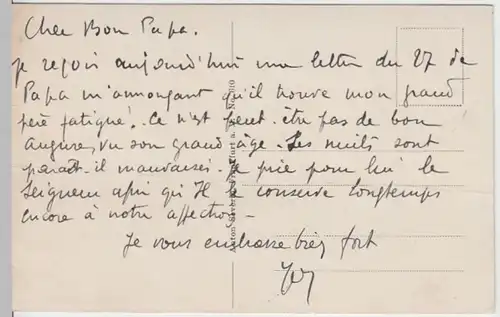 Cher Bon Papa.
je reçois aujourd'hui une lettre du 27 de
Papa m'annonçant qu'il trouve mon grand
père fatigué. Ce n'est peut-être pas de bon
augure, vu son grand âge. Les nuits sont
parait-il mauvaises. Je prie pour lui le
Seigneur afin qu'Il le conserve longtemps
encore à notre affection -
Je vous embrasse bien fort